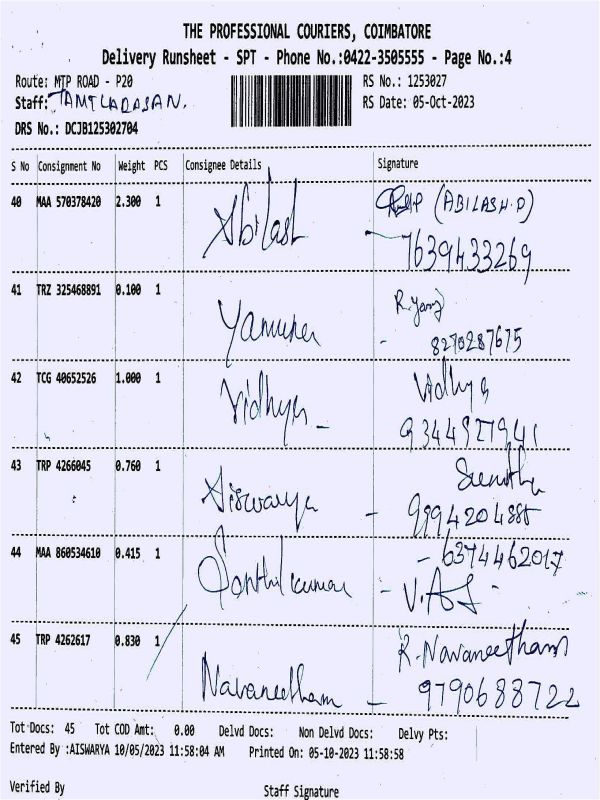 THE PROFESSIONAL COURIERS, COIMBATORE
Delivery Runsheet - SPT - Phone No.:0422-3505555 - Page No.:4
Route: MTP ROAD - P20 RS No.: 1253027
Staff: TAMILARASAN. RS Date: 05-Oct-2023
DRS No.: DCJB125302704
S No Consignment No Weight PCS Consignee Details Signature
40 MAA 570378420 2.300 1 Abilash (ABILASH.P)
7639433269
41 TRZ 325468891 0.100 1 Yamuna R.
8270287675
42 TCG 40652526 1.000 1 Vidhya - Vidhya
9344927941
43 TRP 4266045 0.760 1 Aiswarya - Sunitha
9994204885
44 MAA 860534610 0.415 1 Senthil kumar - 6374462017
45 TRP 4262617 0.830 1 Navaneetham - R. Navaneetham
9790688722
Tot Docs: 45 Tot COD Amt: 0.00 Delvd Docs: Non Delvd Docs: Delvy Pts:
Entered By :AISWARYA 10/05/2023 11:58:04 AM Printed On: 05-10-2023 11:58:58
Verified By Staff Signature